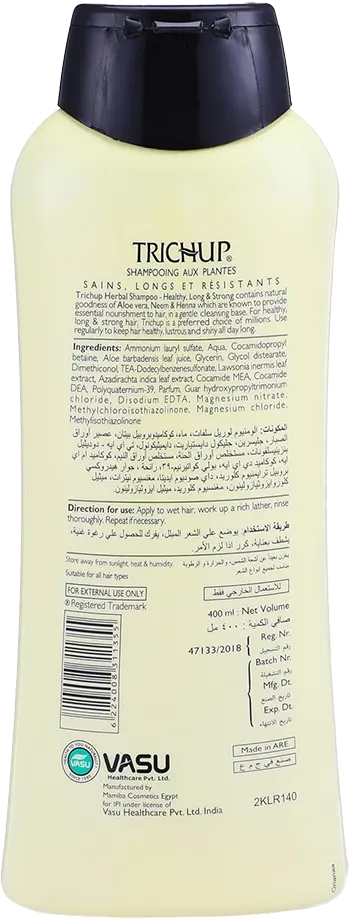 TRICHUP®
SHAMPOOING AUX PLANTES
SAINS, LONGS ET RÉSISTANTS
Trichup Herbal Shampoo - Healthy, Long & Strong contains natural
goodness of Aloe vera, Neem & Henna which are known to provide
essential nourishment to hair, in a gentle cleansing base. For healthy,
long & strong hair, Trichup is a preferred choice of millions. Use
regularly to keep hair healthy, lustrous and shiny all day long.
Ingredients: Ammonium lauryl sulfate, Aqua, Cocamidopropyl
betaine, Aloe barbadensis leaf juice, Glycerin, Glycol distearate,
Dimethiconol, TEA-Dodecylbenzenesulfonate, Lawsonia inermis leaf
extract, Azadirachta indica leaf extract, Cocamide MEA, Cocamide
DEA, Polyquaternium-39, Parfum, Guar hydroxypropyltrimonium
chloride, Disodium EDTA, Magnesium nitrate,
Methylchloroisothiazolinone, Magnesium chloride,
Methylisothiazolinone
المكونات: الومنيوم لوريل سلفات، ماء، كوكاميدوبروبيل بيتان، عصير أوراق
الصبار، جليسرين، جليكول دايستياريت، دايميثيكونول، تي اي ايه - دوديثيل
بنزينيسلفونات، مستخلص أوراق الحنة، مستخلص أوراق النيم، كوكاميد أم اي
ايه، كوكاميد دي اي ايه، بولي كواتيرنيم-٣٩، رائحة، جوار هيدروكسي
Direction for use: Apply to wet hair, work up a rich lather, rinse
thoroughly. Repeat if necessary.
طريقة الاستخدام: يوضع على الشعر المبلل، يفرك للحصول علي رغوة غنية،
يشطف بعناية، كرر اذا لزم الأمر.
Store away from sunlight, heat & humidity.
يخزن بعيداً عن أشعة الشمس، والحرارة و الرطوبة
Suitable for all hair types
لجميع انواع الشعر
FOR EXTERNAL USE ONLY
للاستعمال الخارجي فقط
® Registered Trademark
400 ml : Net Volume
صافي الكمية : ٤٠٠ مل
Reg. Nr.
47133/2018
رقم التسجيل
Batch Nr.
رقم التشغيلة
Mfg. Dt.
تاريخ الصنع
Exp. Dt.
تاريخ الانتهاء
6224008311355
Made in ARE
صنع في ج م ع
VASU
VASU
Healthcare Pvt. Ltd.
Manufactured by
Mamiba Cosmetics Egypt
for IPI under license of
Vasu Healthcare Pvt. Ltd. India
2KLR140